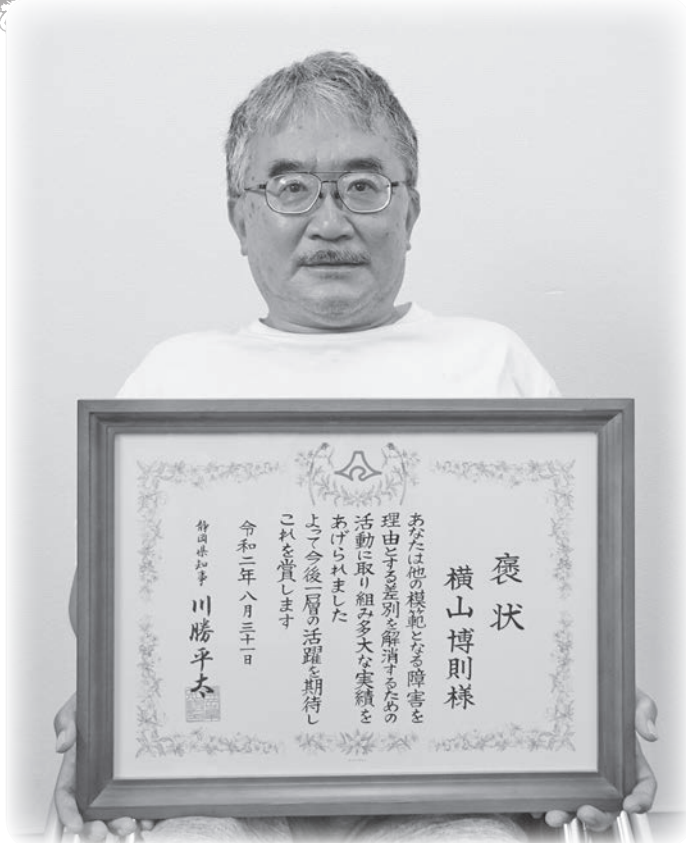 褒状
横山博則様
あなたは他の模範となる障害を
理由とする差別を解消するための
活動に取り組み多大な実績を
あげられました
よって今後一層の活躍を期待し
これを賞します
令和二年八月三十一日
静岡県知事 川勝平太